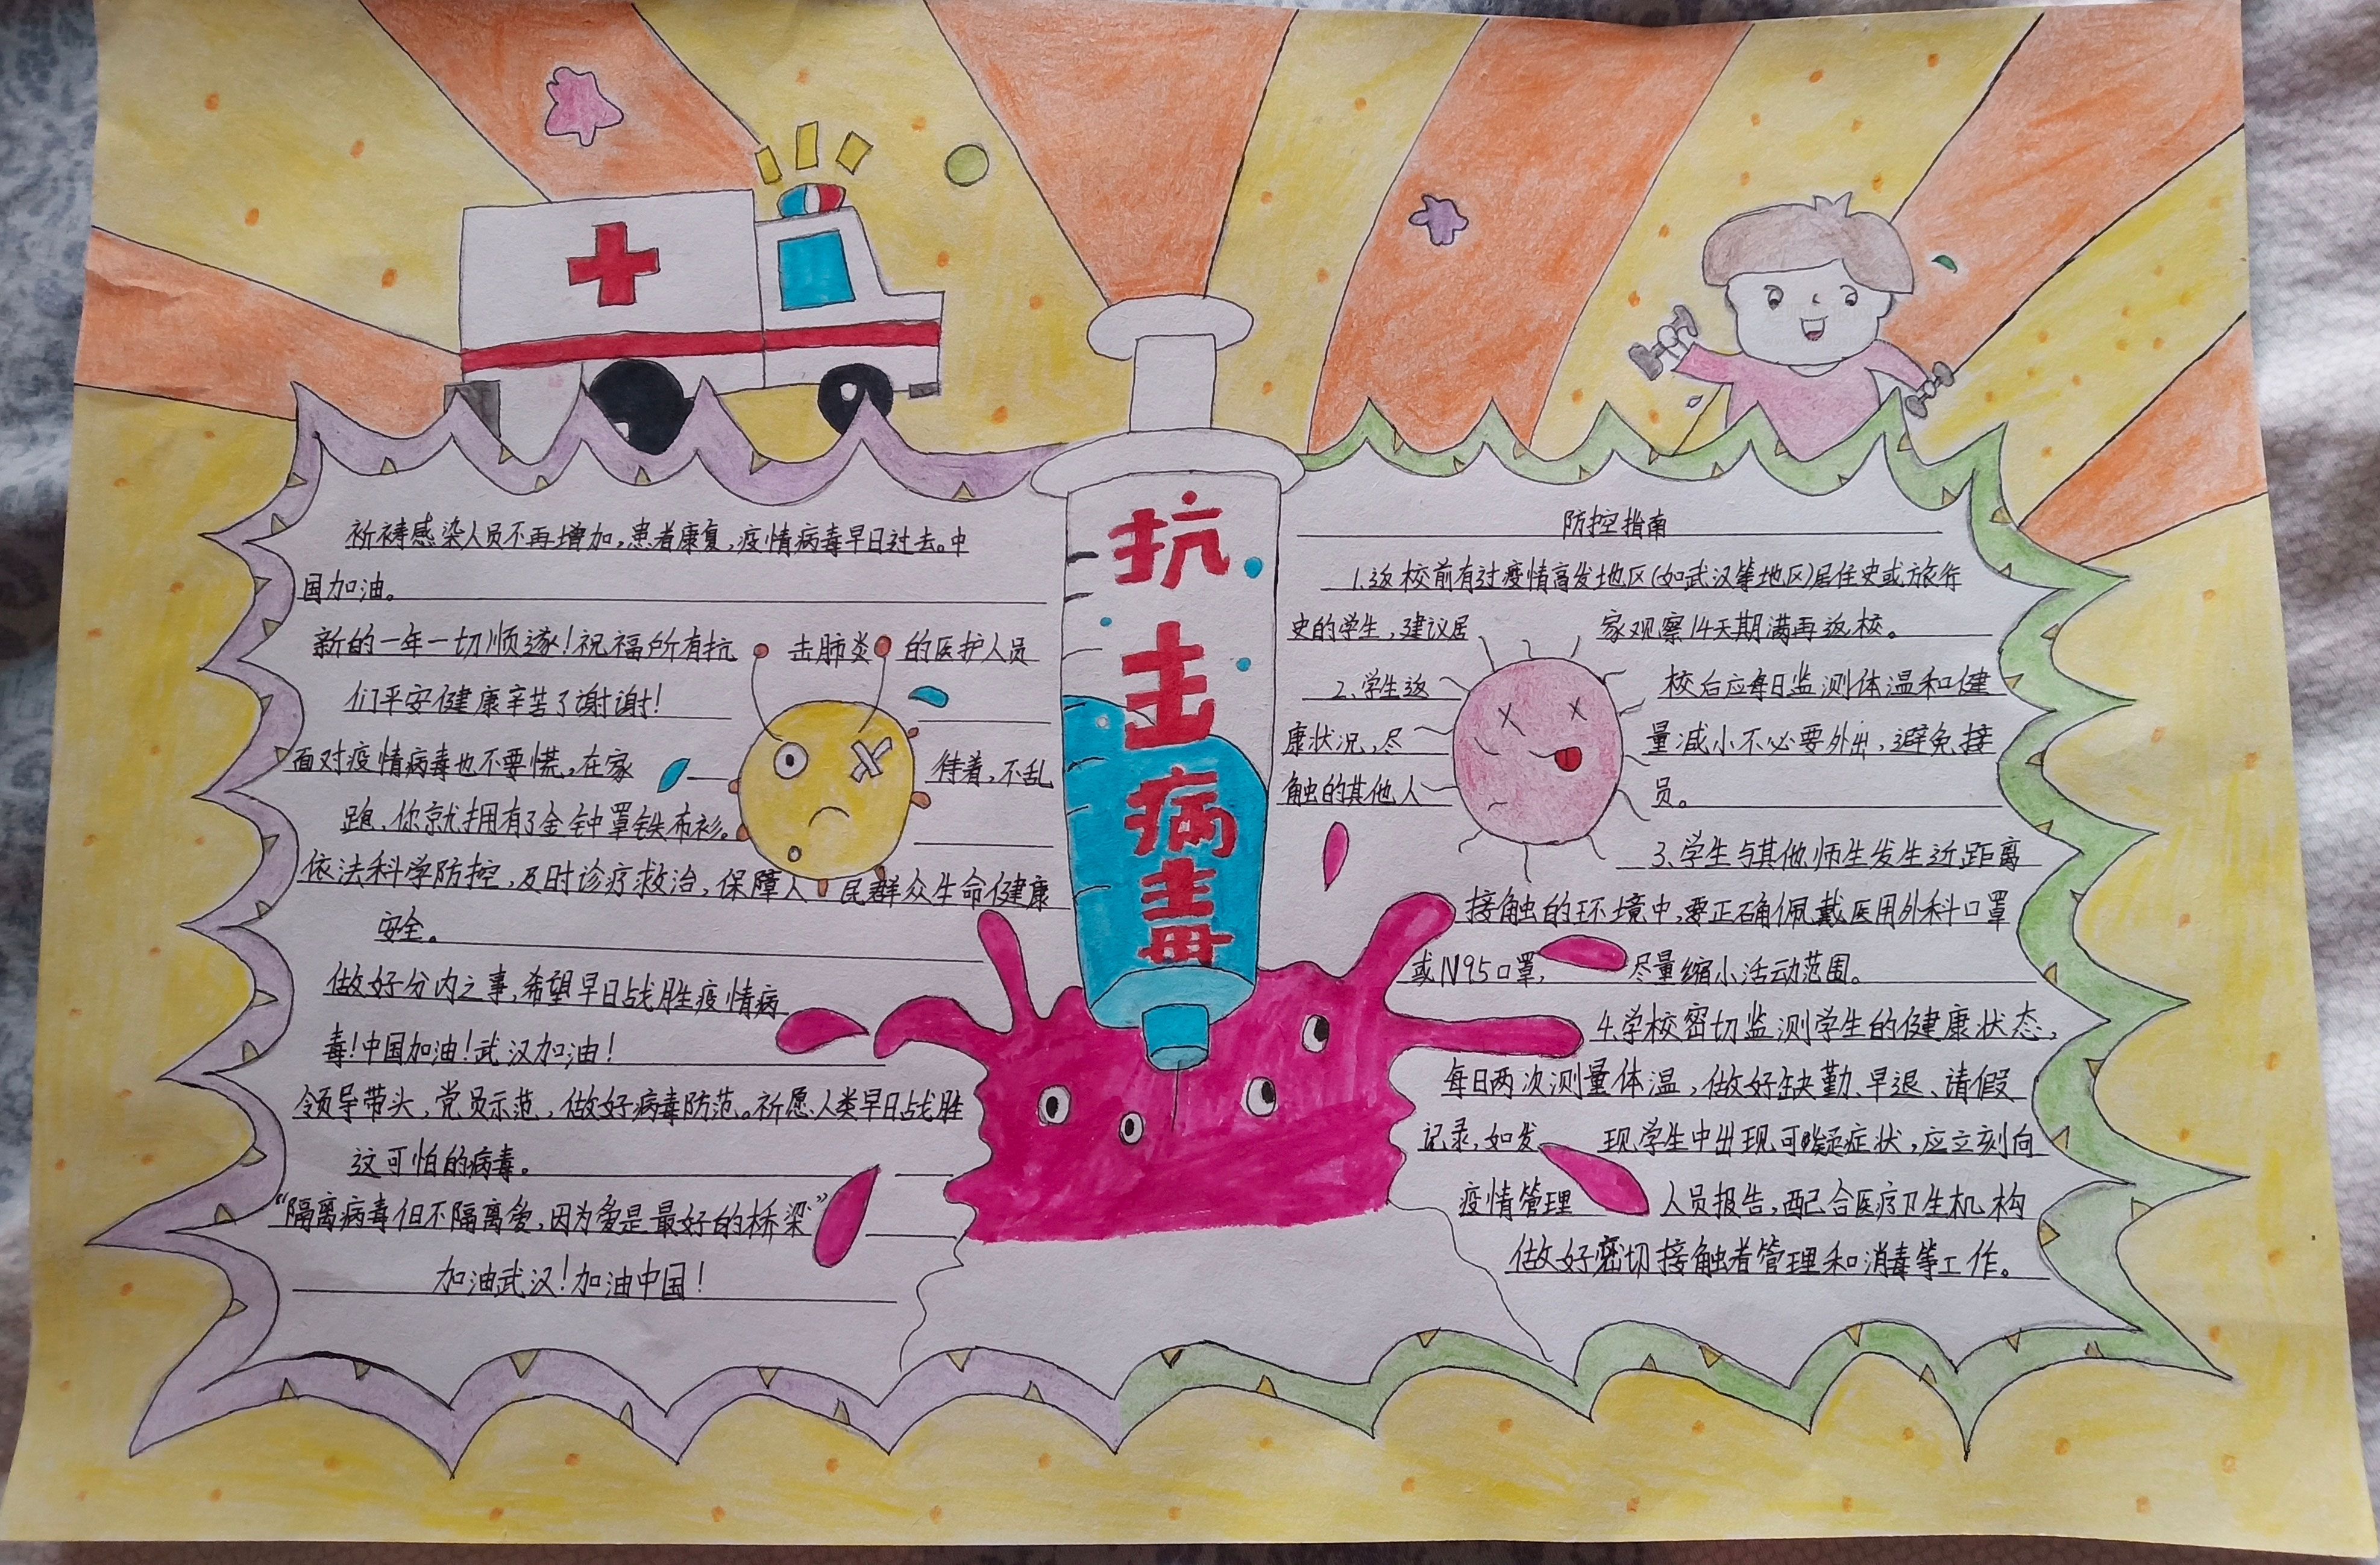 祈祷感染人员不再增加,患者康复,疫情病毒早日过去。中
国加油。
新的一年一切顺遂!祝福所有抗击肺炎的医护人员
们平安健康辛苦了谢谢!
面对疫情病毒也不要慌,在家待着,不乱
跑,你就拥有了金钟罩铁布衫。
依法科学防控,及时诊疗救治,保障人民群众生命健康
安全。
做好分内之事,希望早日战胜疫情病
毒!中国加油!武汉加油!
领导带头,党员示范,做好病毒防范。祈愿人类早日战胜
这可怕的病毒。
“隔离病毒但不隔离爱,因为爱是最好的桥梁”
加油武汉!加油中国!
抗
击
病
毒
防控指南
1.返校前有过疫情高发地区(如武汉等地区)居住史或旅行
史的学生,建议居家观察14天期满再返校。
2、学生返校后应每日监测体温和健
康状况,尽量减小不必要外出,避免接
触的其他人员。
3、学生与其他师生发生近距离
接触的环境中,要正确佩戴医用外科口罩
或N95口罩,尽量缩小活动范围。
4.学校密切监测学生的健康状态,
每日两次测量体温,做好缺勤、早退、请假
记录,如发现学生中出现可疑症状,应立刻向
疫情管理人员报告,配合医疗卫生机构
做好密切接触者管理和消毒等工作。